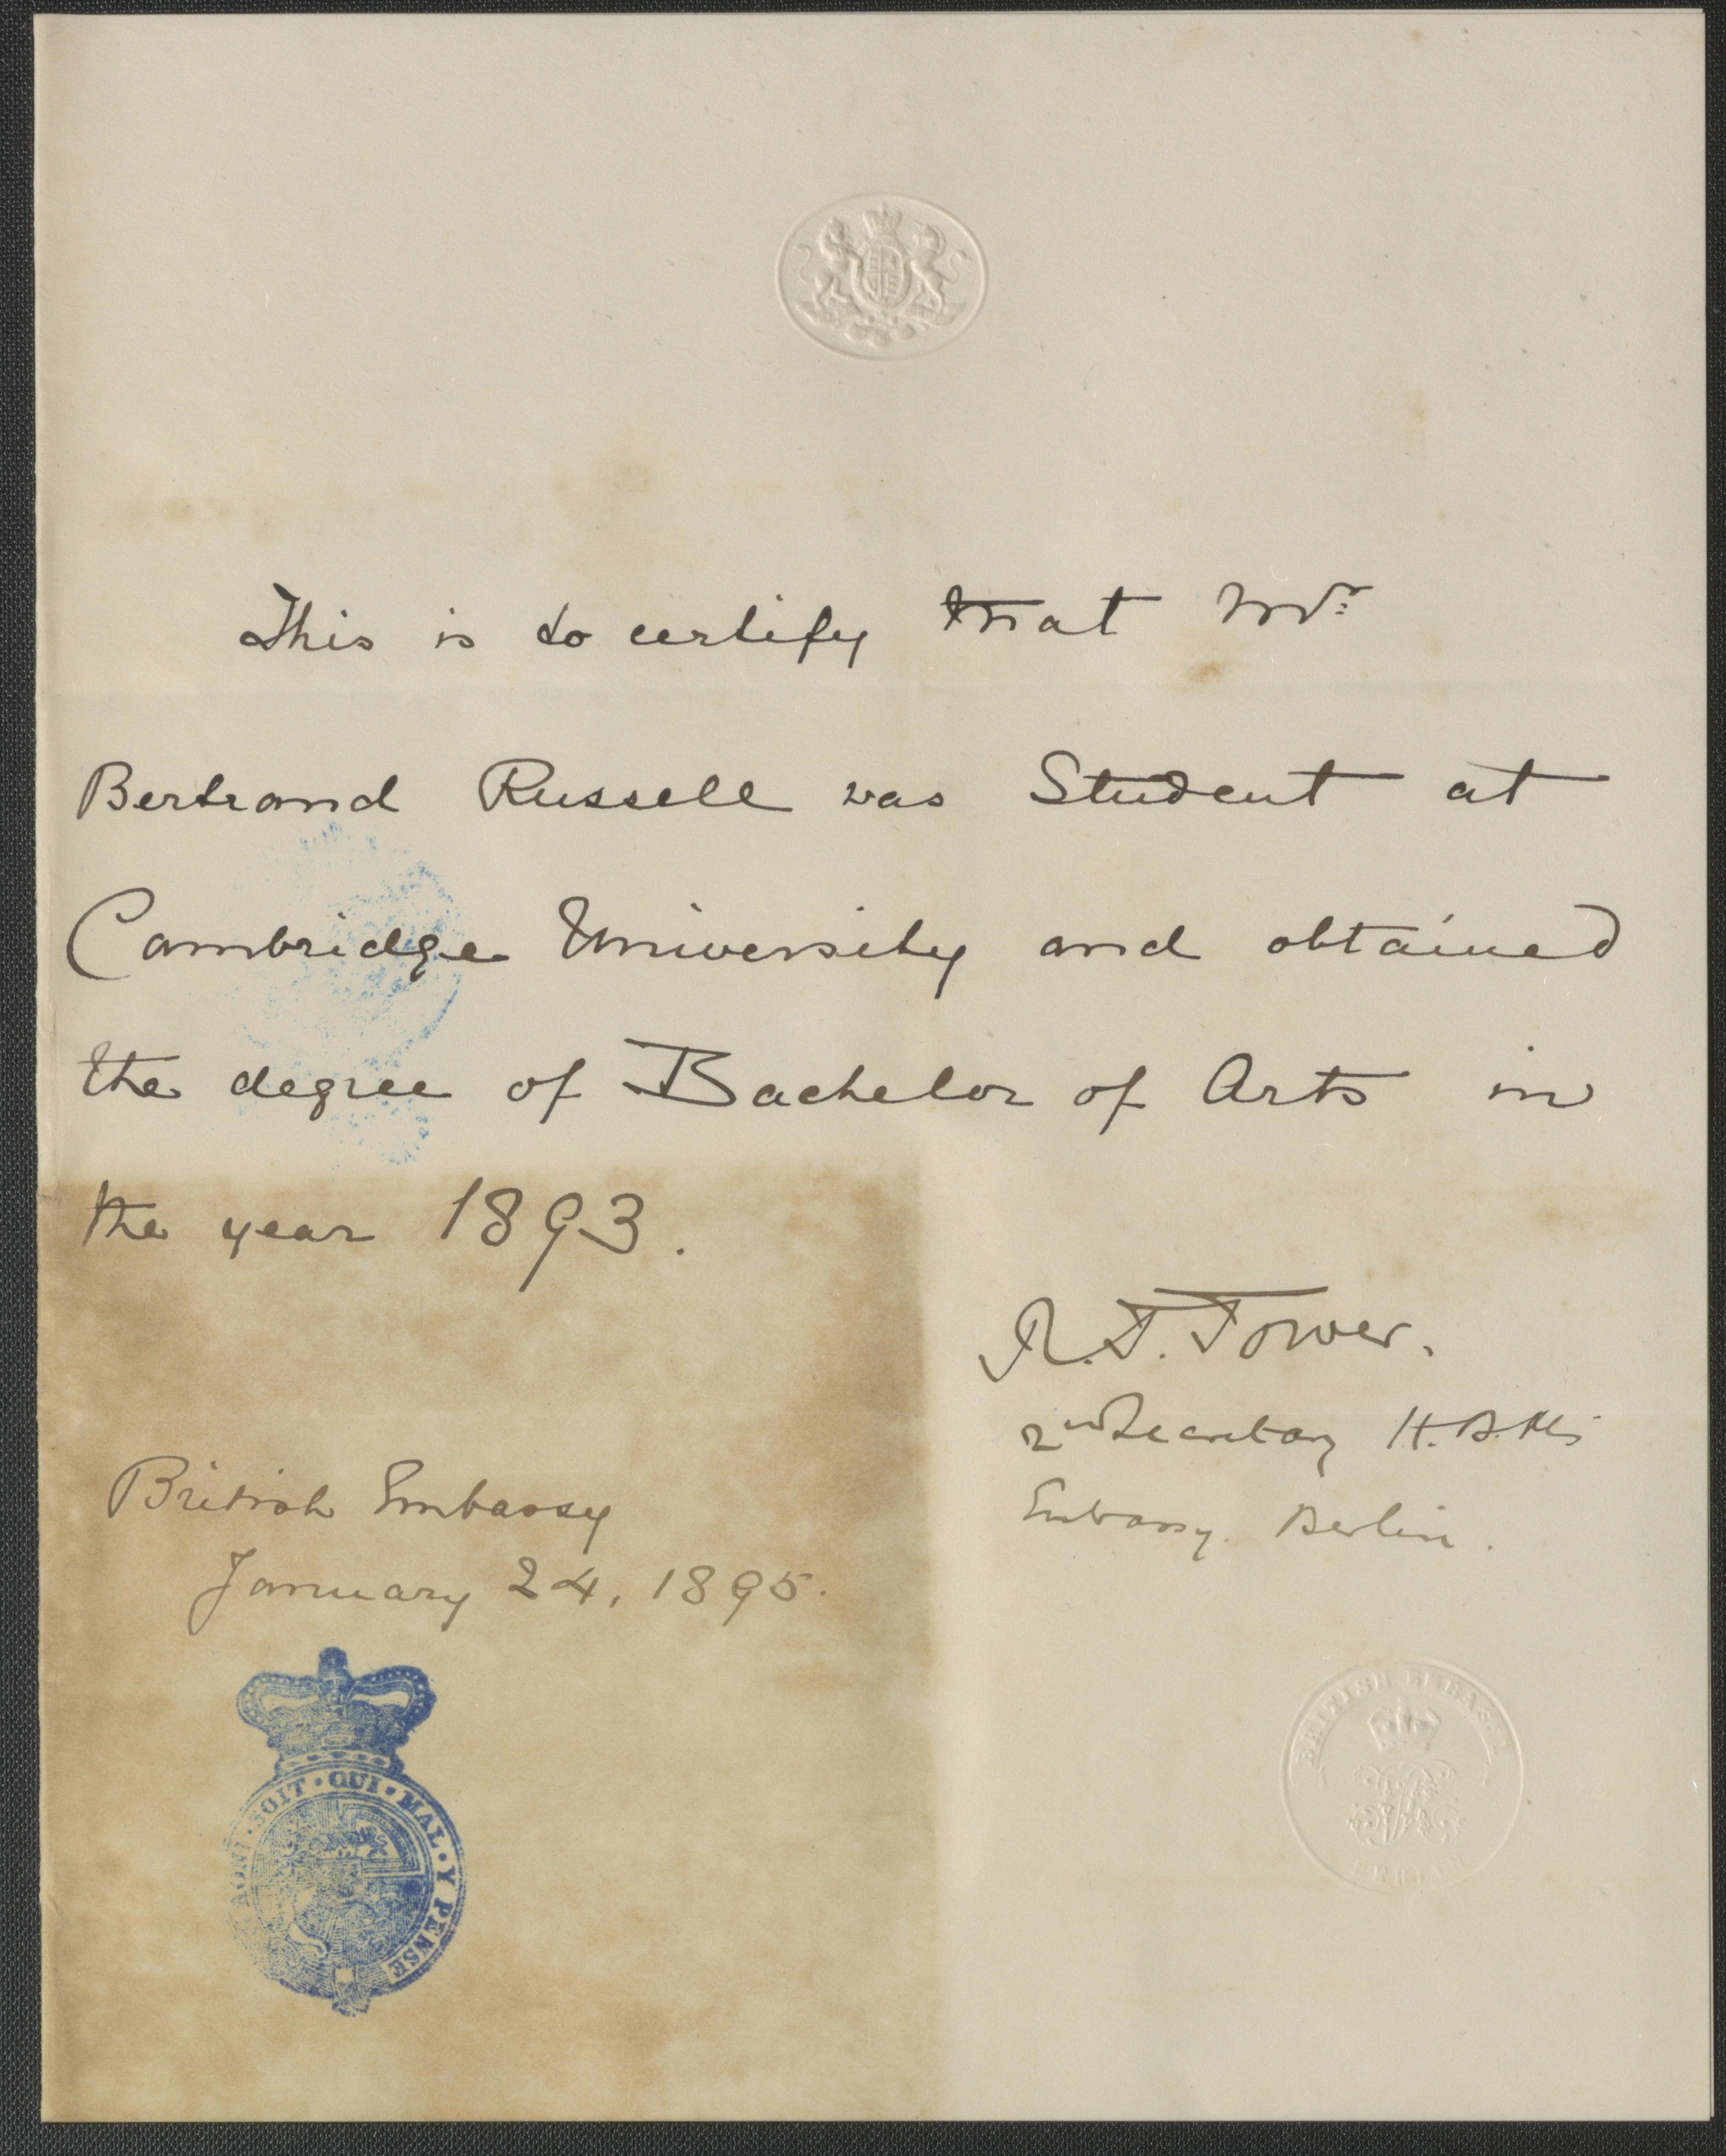 This is to certify that Mr.
Bertrand Russell was Student at
Cambridge University and obtained
the degree of Bachelor of Arts in
the year 1893.
R. T. Tower.
2nd Secretary H.B.M's
Embassy. Berlin.
British Embassy
January 24, 1895.
HONI · SOIT · QUI · MAL · Y PENSE
BRITISH EMBASSY
BERLIN